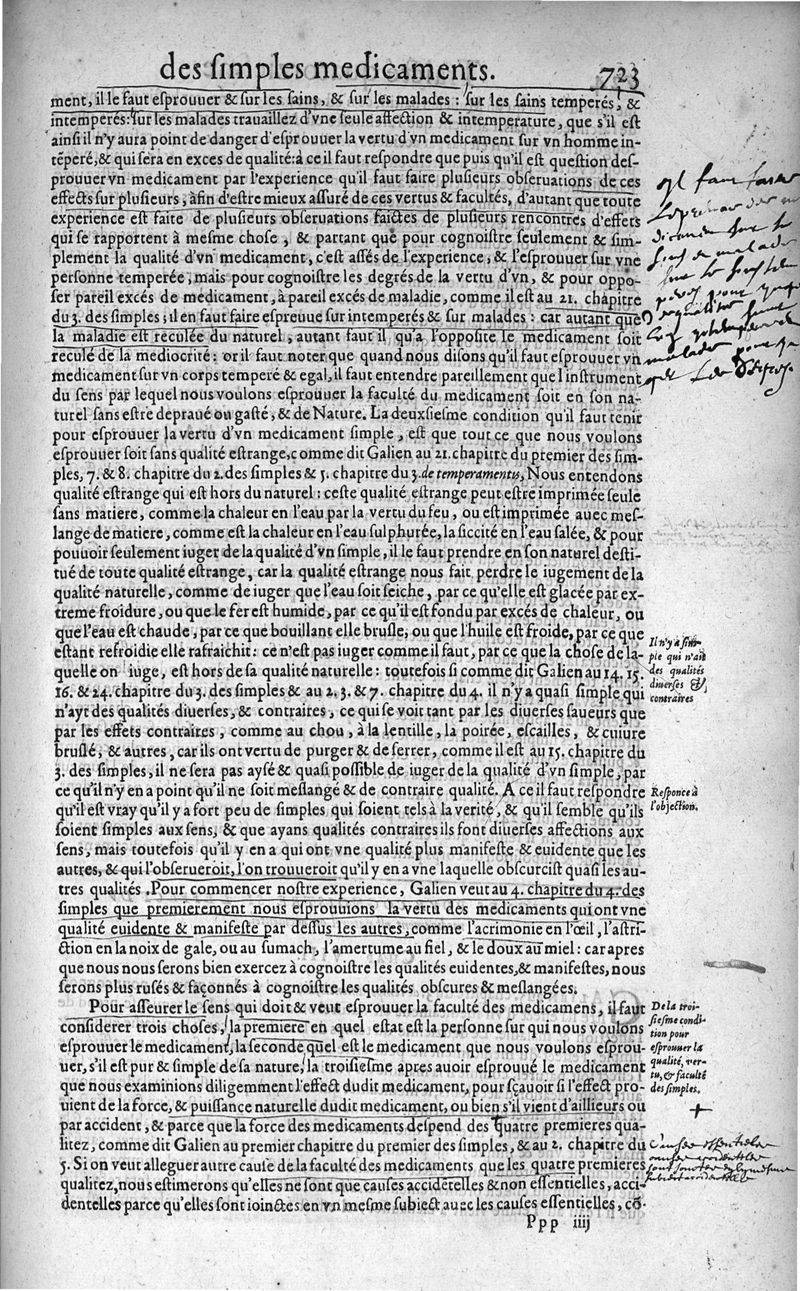 des ſimples medicaments.
723
ment, il le faut eſprouuer & ſur les ſains, & ſur les malades : ſur les ſains temperés, &
intemperés: ſur les malades trauaillez d'vne ſeule affection & intemperature, que s'il eſt
ainſi il n'y aura point de danger d'eſprouuer la vertu d'vn medicament ſur vn homme in-
tẽperé, & qui ſera en exces de qualité: à ce il faut reſpondre que puis qu'il eſt queſtion deſ-
prouuer vn medicament par l'experience qu'il faut faire pluſieurs obſeruations de ces
effects ſur pluſieurs, àfin d'eſtre mieux aſſuré de ces vertus & facultés, d'autant que toute
experience eſt faite de pluſieurs obſeruations faictes de pluſieurs rencontres d'effets
qui ſe rapportent à meſme choſe, & partant que pour cognoiſtre ſeulement & ſim-
plement la qualité d'vn medicament, c'eſt aſſés de l'experience, & l'eſprouuer ſur vne
perſonne temperée, mais pour cognoiſtre les degrés de la vertu d'vn, & pour oppo-
ſer pareil excés de medicament, à pareil excés de maladie, comme il eſt au 21. chapitre
du 3. des ſimples, il en faut faire eſpreuue ſur intemperés & ſur malades : car autant que
la maladie eſt reculée du naturel, autant faut il qu'a l'oppoſite le medicament ſoit
reculé de la mediocrité : or il faut noter que quand nous diſons qu'il faut eſprouuer vn
medicament ſur vn corps temperé & egal, il faut entendre pareillement que l'inſtrument
du ſens par lequel nous voulons eſprouuer la faculté du medicament ſoit en ſon na-
turel ſans eſtre depraué ou gaſté, & de Nature. La deuxſieſme condition qu'il faut tenir
pour eſprouuer la vertu d'vn medicament ſimple, eſt que tout ce que nous voulons
eſprouuer ſoit ſans qualité eſtrange, comme dit Galien au 21. chapitre du premier des ſim-
ples, 7. & 8. chapitre du 2. des ſimples & 5. chapitre du 3. de temperamentis, Nous entendons
qualité eſtrange qui eſt hors du naturel : ceſte qualité eſtrange peut eſtre imprimée ſeule
ſans matiere, comme la chaleur en l'eau par la vertu du feu, ou eſt imprimée auec meſ-
lange de matiere, comme eſt la chaleur en l'eau ſulphurée, la ſiccité en l'eau ſalée, & pour
pouuoir ſeulement iuger de la qualité d'vn ſimple, il le faut prendre en ſon naturel deſti-
tué de toute qualité eſtrange, car la qualité eſtrange nous fait perdre le iugement de la
qualité naturelle, comme de iuger que l'eau ſoit ſeiche, par ce qu'elle eſt glacée par ex-
treme froidure, ou que le fer eſt humide, par ce qu'il eſt fondu par excés de chaleur, ou
que l'eau eſt chaude, par ce que bouillant elle bruſle, ou que l'huile eſt froide, par ce que
eſtant refroidie elle rafraichit : ce n'eſt pas iuger comme il faut, par ce que la choſe de la-
quelle on iuge, eſt hors de ſa qualité naturelle : toutefois ſi comme dit Galien au 14. 15.
16. & 24. chapitre du 3. des ſimples & au 2. 3. & 7. chapitre du 4. il n'y a quaſi ſimple qui
n'ayt des qualités diuerſes, & contraires, ce qui ſe voit tant par les diuerſes ſaueurs que
par les effets contraires, comme au chou, à la lentille, la poirée, eſcailles, & cuiure
bruſlé, & autres, car ils ont vertu de purger & de ſerrer, comme il eſt au 15. chapitre du
3. des ſimples, il ne ſera pas ayſé & quaſi poſſible de iuger de la qualité d'vn ſimple, par
ce qu'il n'y en a point qu'il ne ſoit meſlangé & de contraire qualité. A ce il faut reſpondre
qu'il eſt vray qu'il y a fort peu de ſimples qui ſoient tels à la verité, & qu'il ſemble qu'ils
ſoient ſimples aux ſens, & que ayans qualités contraires ils font diuerſes affections aux
ſens, mais toutefois qu'il y en a qui ont vne qualité plus manifeſte & euidente que les
autres, & qui l'obſerueroit, l'on trouueroit qu'il y en a vne laquelle obſcurciſt quaſi les au-
tres qualités. Pour commencer noſtre experience, Galien veut au 4. chapitre du 4. des
ſimples que premierement nous eſprouuions la vertu des medicaments qui ont vne
qualité euidente & manifeſte par deſſus les autres, comme l'acrimonie en l'œil, l'aſtri-
ction en la noix de gale, ou au ſumach, l'amertume au fiel, & le doux au miel : car apres
que nous nous ſerons bien exercez à cognoiſtre les qualités euidentes, & manifeſtes, nous
ſerons plus ruſés & façonnés à cognoiſtre les qualités obſcures & meſlangées.
Pour aſſeurer le ſens qui doit & veut eſprouuer la faculté des medicamens, il faut
conſiderer trois choſes, la premiere en quel eſtat eſt la perſonne ſur qui nous voulons
eſprouuer le medicament, la ſeconde quel eſt le medicament que nous voulons eſprou-
uer, s'il eſt pur & ſimple de ſa nature, la troiſieſme apres auoir eſprouué le medicament
que nous examinions diligemment l'effect dudit medicament, pour ſçauoir ſi l'effect pro-
uient de la force, & puiſſance naturelle dudit medicament, ou bien s'il vient d'ailleurs ou
par accident, & parce que la force des medicaments deſpend des quatre premieres qua-
litez, comme dit Galien au premier chapitre du premier des ſimples, & au 2. chapitre du
5. Si on veut alleguer autre cauſe de la faculté des medicaments que les quatre premieres
qualitez, nous eſtimerons qu'elles ne ſont que cauſes accidẽtelles & non eſſentielles, acci-
dentelles parce qu'elles ſont ioinctes en vn meſme ſubiect auec les cauſes eſſentielles, cõ-
Ppp iiij
Il n'y a ſim-
ple qui n'ait
des qualités
diuerſes &
contraires
Reſponce à
l'obiection.
De la troi-
ſieſme condi-
tion pour
eſprouuer la
qualité, ver-
tu, & faculté
des ſimples.